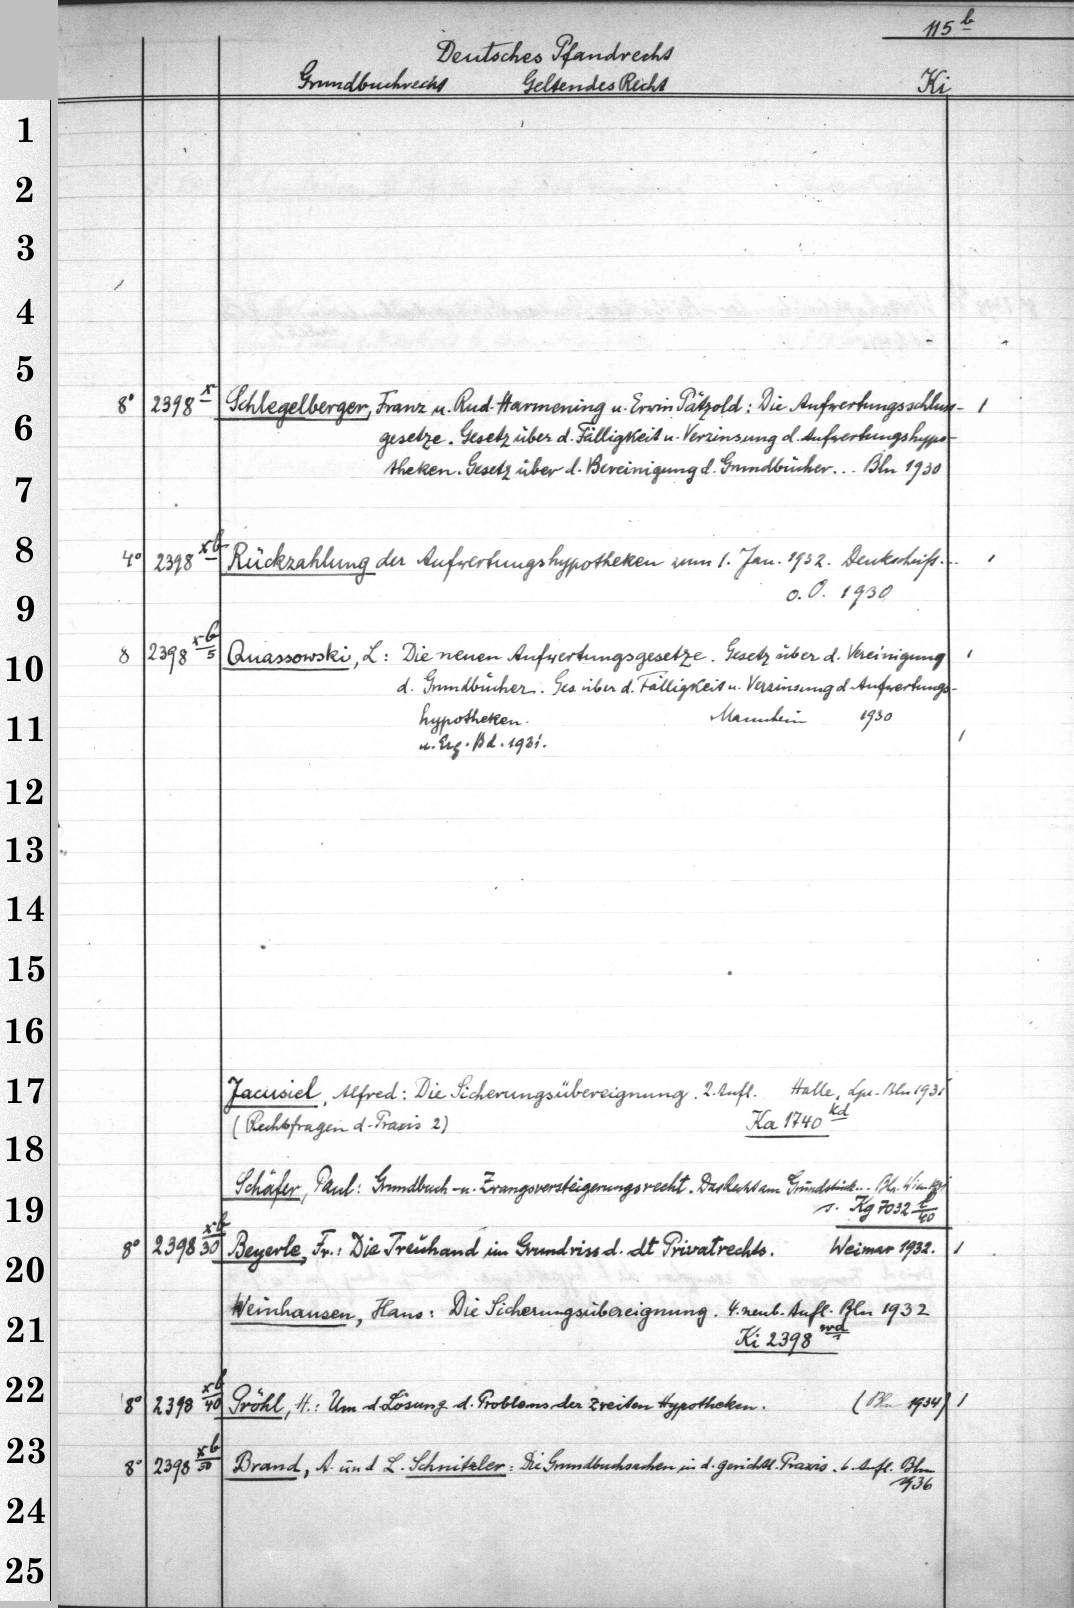 115 b
Deutsches Pfandrecht
Grundbuchrecht Geltendes Recht Ki
1
2
3
4
5
8° 2398 x Schlegelberger, Franz u. Rud. Harmening u. Erwin Pätzold: Die Aufwertungsschluss- 1
6
gesetze. Gesetz über d. Fälligkeit u. Verzinsung d. Aufwertungshypo-
theken. Gesetz über d. Bereinigung d. Grundbücher... Bln 1930
7
8
4° 2398 xb Rückzahlung der Aufwertungshypotheken zum 1. Jan. 1932. Denkschrift... 1
9
o. O. 1930
8 2398 xb/5 Quassowski, L: Die neuen Aufwertungsgesetze. Gesetz über d. Vereinigung 1
10
d. Grundbücher. Ges über d. Fälligkeit u. Verzinsung d. Aufwertungs-
hypotheken. Mannheim 1930
11
u. Erg. Bd. 1931. 1
12
13
14
15
16
17
Jacusiel, Alfred: Die Sicherungsübereignung. 2. Aufl. Halle, Lpz. Bln 1931
(Rechtsfragen d. Praxis 2) Ka 1740 kd
18
Schäfer, Paul: Grundbuch- u. Zwangsversteigerungsrecht. Das Recht am Grundstück... Bln. Wien
19
s. Kg 7032 /40
8° 2398 xb/30 Beyerle, Fr.: Die Treuhand im Grundriss d. dt Privatrechts. Weimar 1932. 1
20
Weinhausen, Hans: Die Sicherungsübereignung. 4. neub. Aufl. Bln 1932
21
Ki 2398
22
8° 2398 xb/40 Pröhl, H.: Um d Lösung d. Problems der zweiten Hypotheken. (Bln 1934) 1
23
8° 2398 xb/50 Brand, A. und L. Schnitzler: Die Grundbuchsachen in d. gerichtl. Praxis. 6. Aufl. Bln
1936
24
25